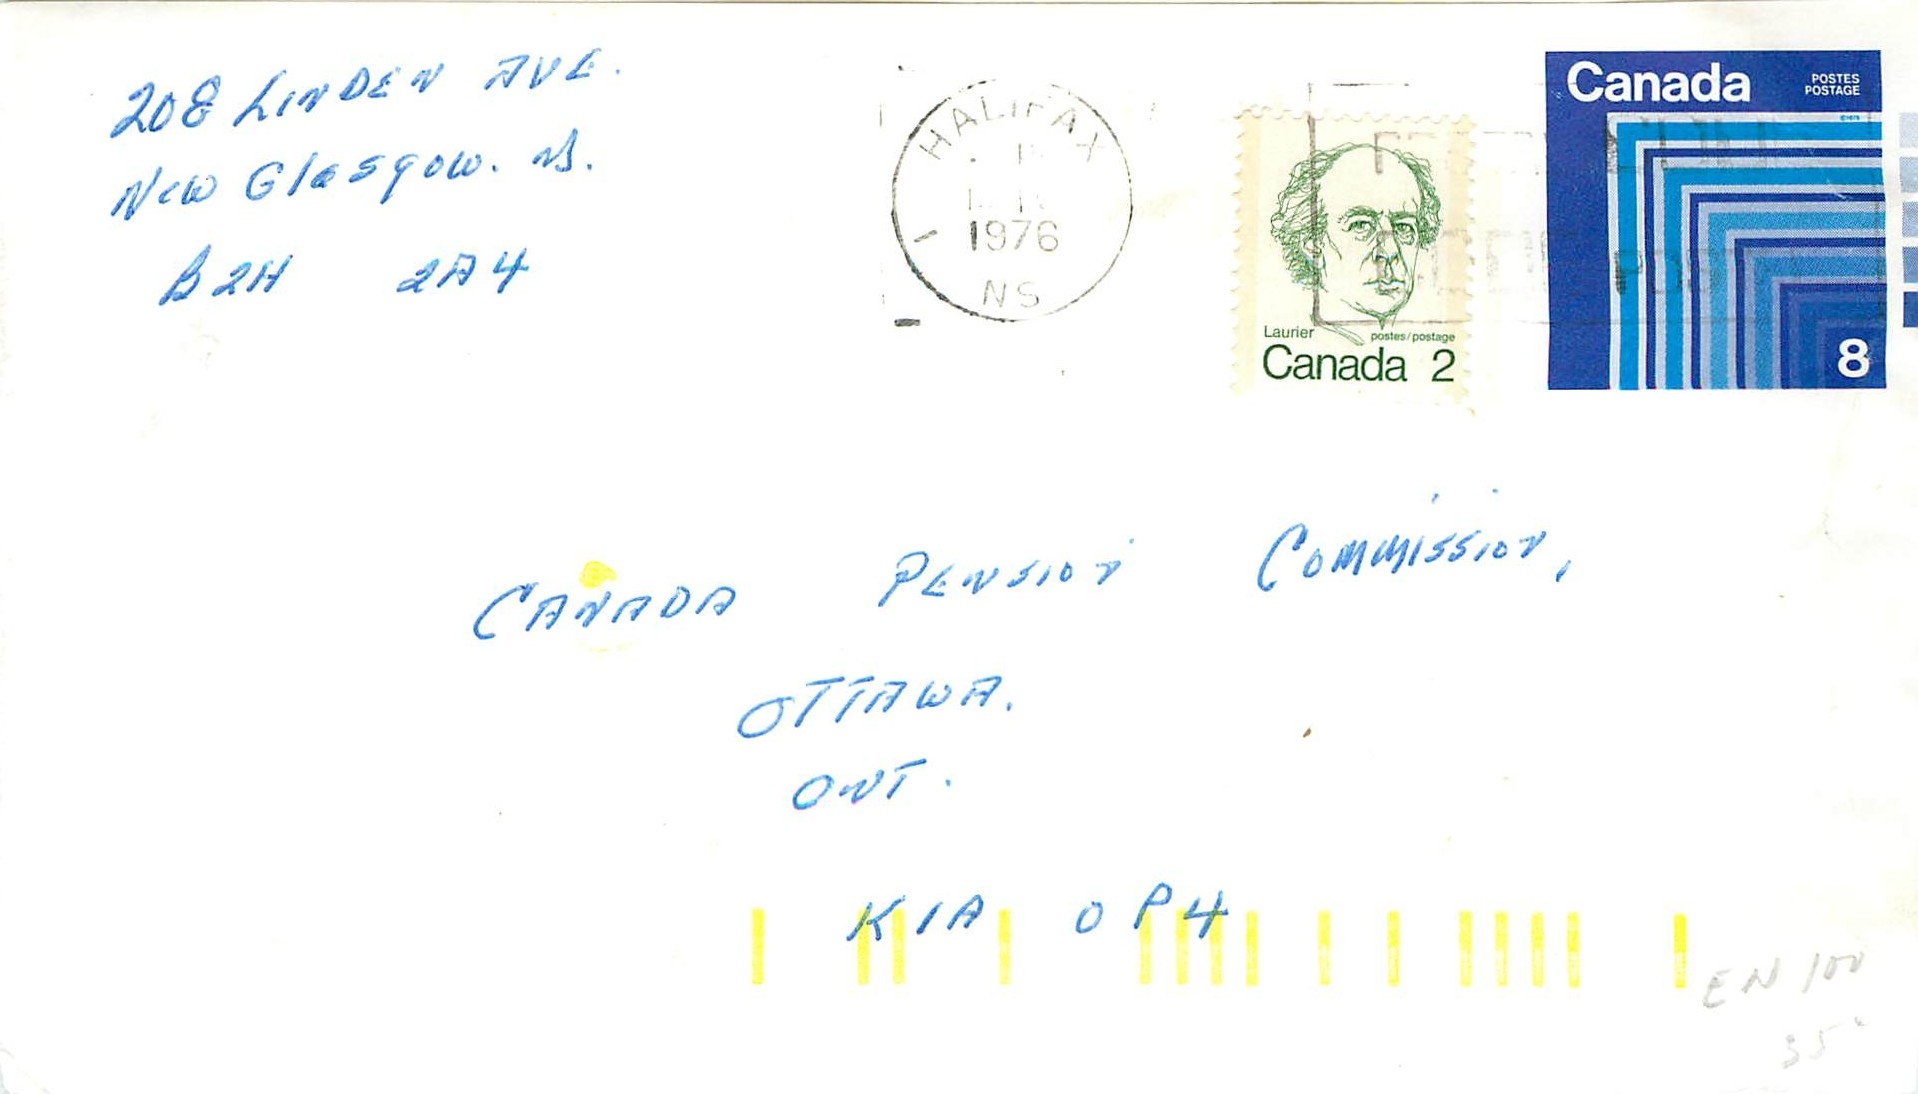 208 LINDEN AVE.
New Glasgow. NS.
B2H 2A4
HALIFAX
1976
NS
Laurier postes/postage
Canada 2
Canada POSTES
POSTAGE
8
CANADA PENSION COMMISSION,
OTTAWA.
ONT.
K1A 0P4
EN 100
35